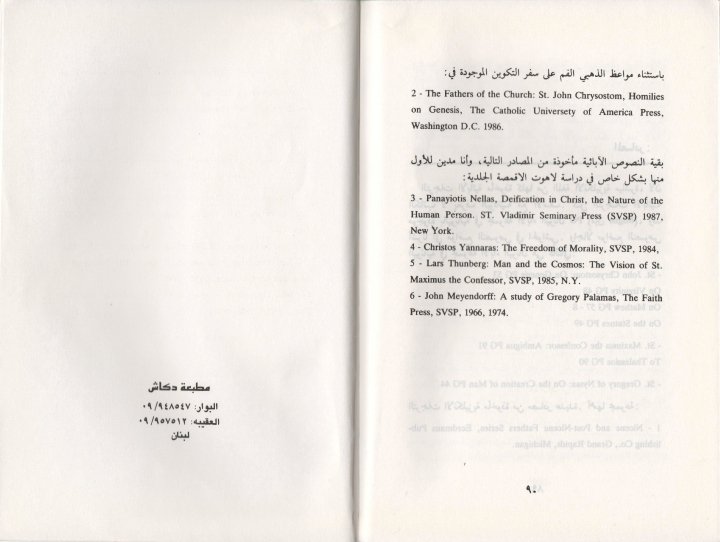 باستثناء مواعظ الذهبي الفم على سفر التكوين الموجودة في:
2 - The Fathers of the Church: St. John Chrysostom, Homilies
on Genesis, The Catholic Universety of America Press,
Washington D.C. 1986.
بقية النصوص الآبائية مأخوذة من المصادر التالية، وأنا مدين للأول
منها بشكل خاص في دراسة لاهوت الاقمصة الجلدية:
3 - Panayiotis Nellas, Deification in Christ, the Nature of the
Human Person. ST. Vladimir Seminary Press (SVSP) 1987,
New York.
4 - Christos Yannaras: The Freedom of Morality, SVSP, 1984,
5 - Lars Thunberg: Man and the Cosmos: The Vision of St.
Maximus the Confessor, SVSP, 1985, N.Y.
6 - John Meyendorff: A study of Gregory Palamas, The Faith
Press, SVSP, 1966, 1974.
٩٠
مطبعة دكاش
البوار: ٠٩/٩٤٨٥٤٧
العقيبه: ٠٩/٩٥٧٥١٢
لبنان